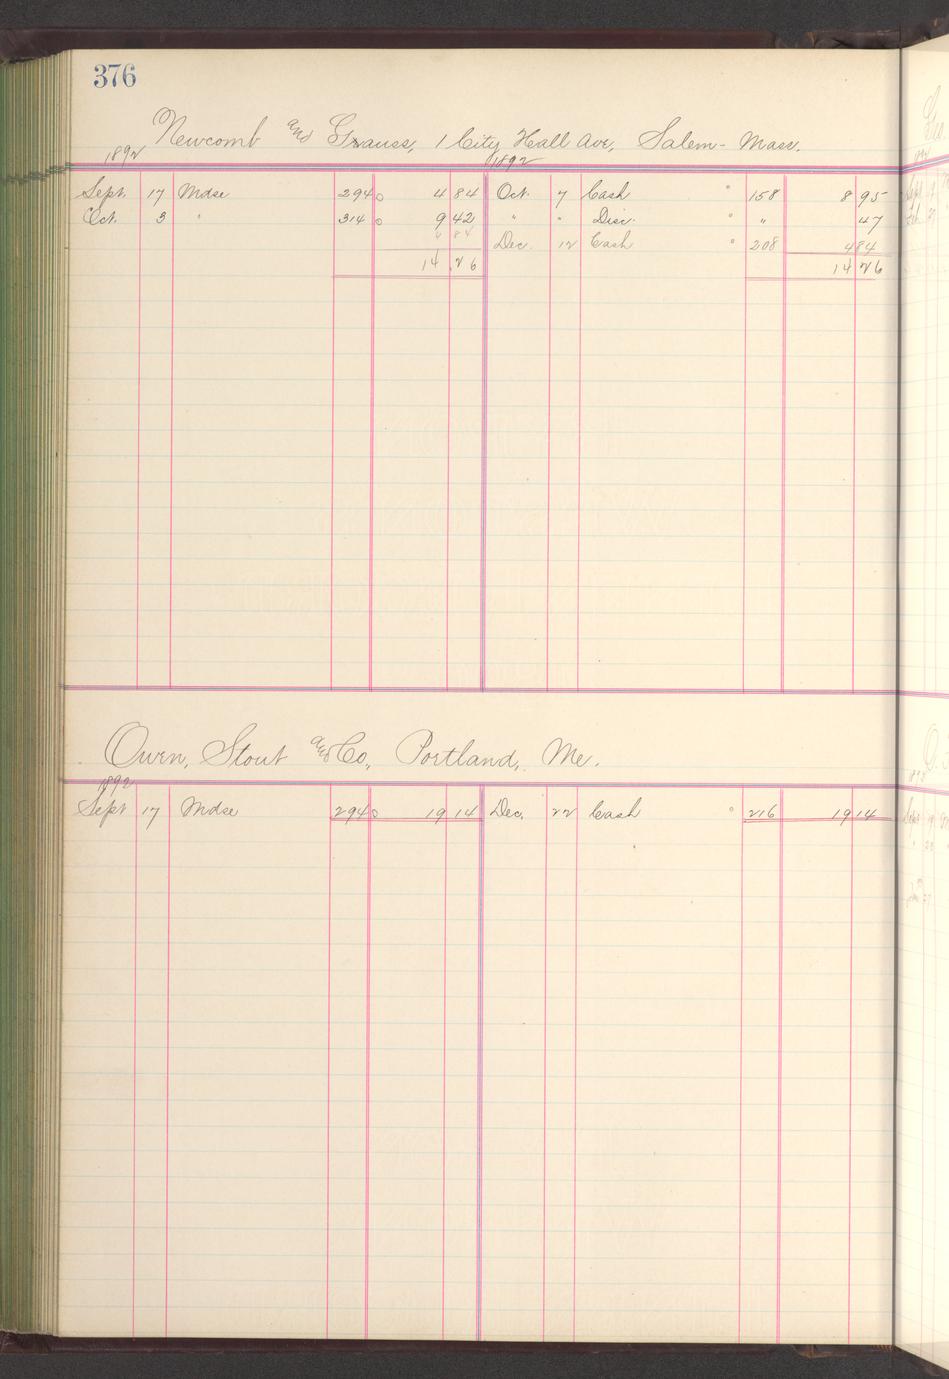 376
Newcomb and Gauss, 1 City Hall Ave, Salem - Mass.
1892 1892
Sept. 17 Mdse 294 0 4 84 Oct. 7 Cash " 158 8 95
Oct. 3 " 314 0 9 42 " " Disc. " " 47
4 84 Dec. 12 Cash " 208 4 84
14 26 14 26
Owen, Stout and Co., Portland, Me.
1892
Sept 17 Mdse 294 0 19 14 Dec. 22 Cash " 216 19 14